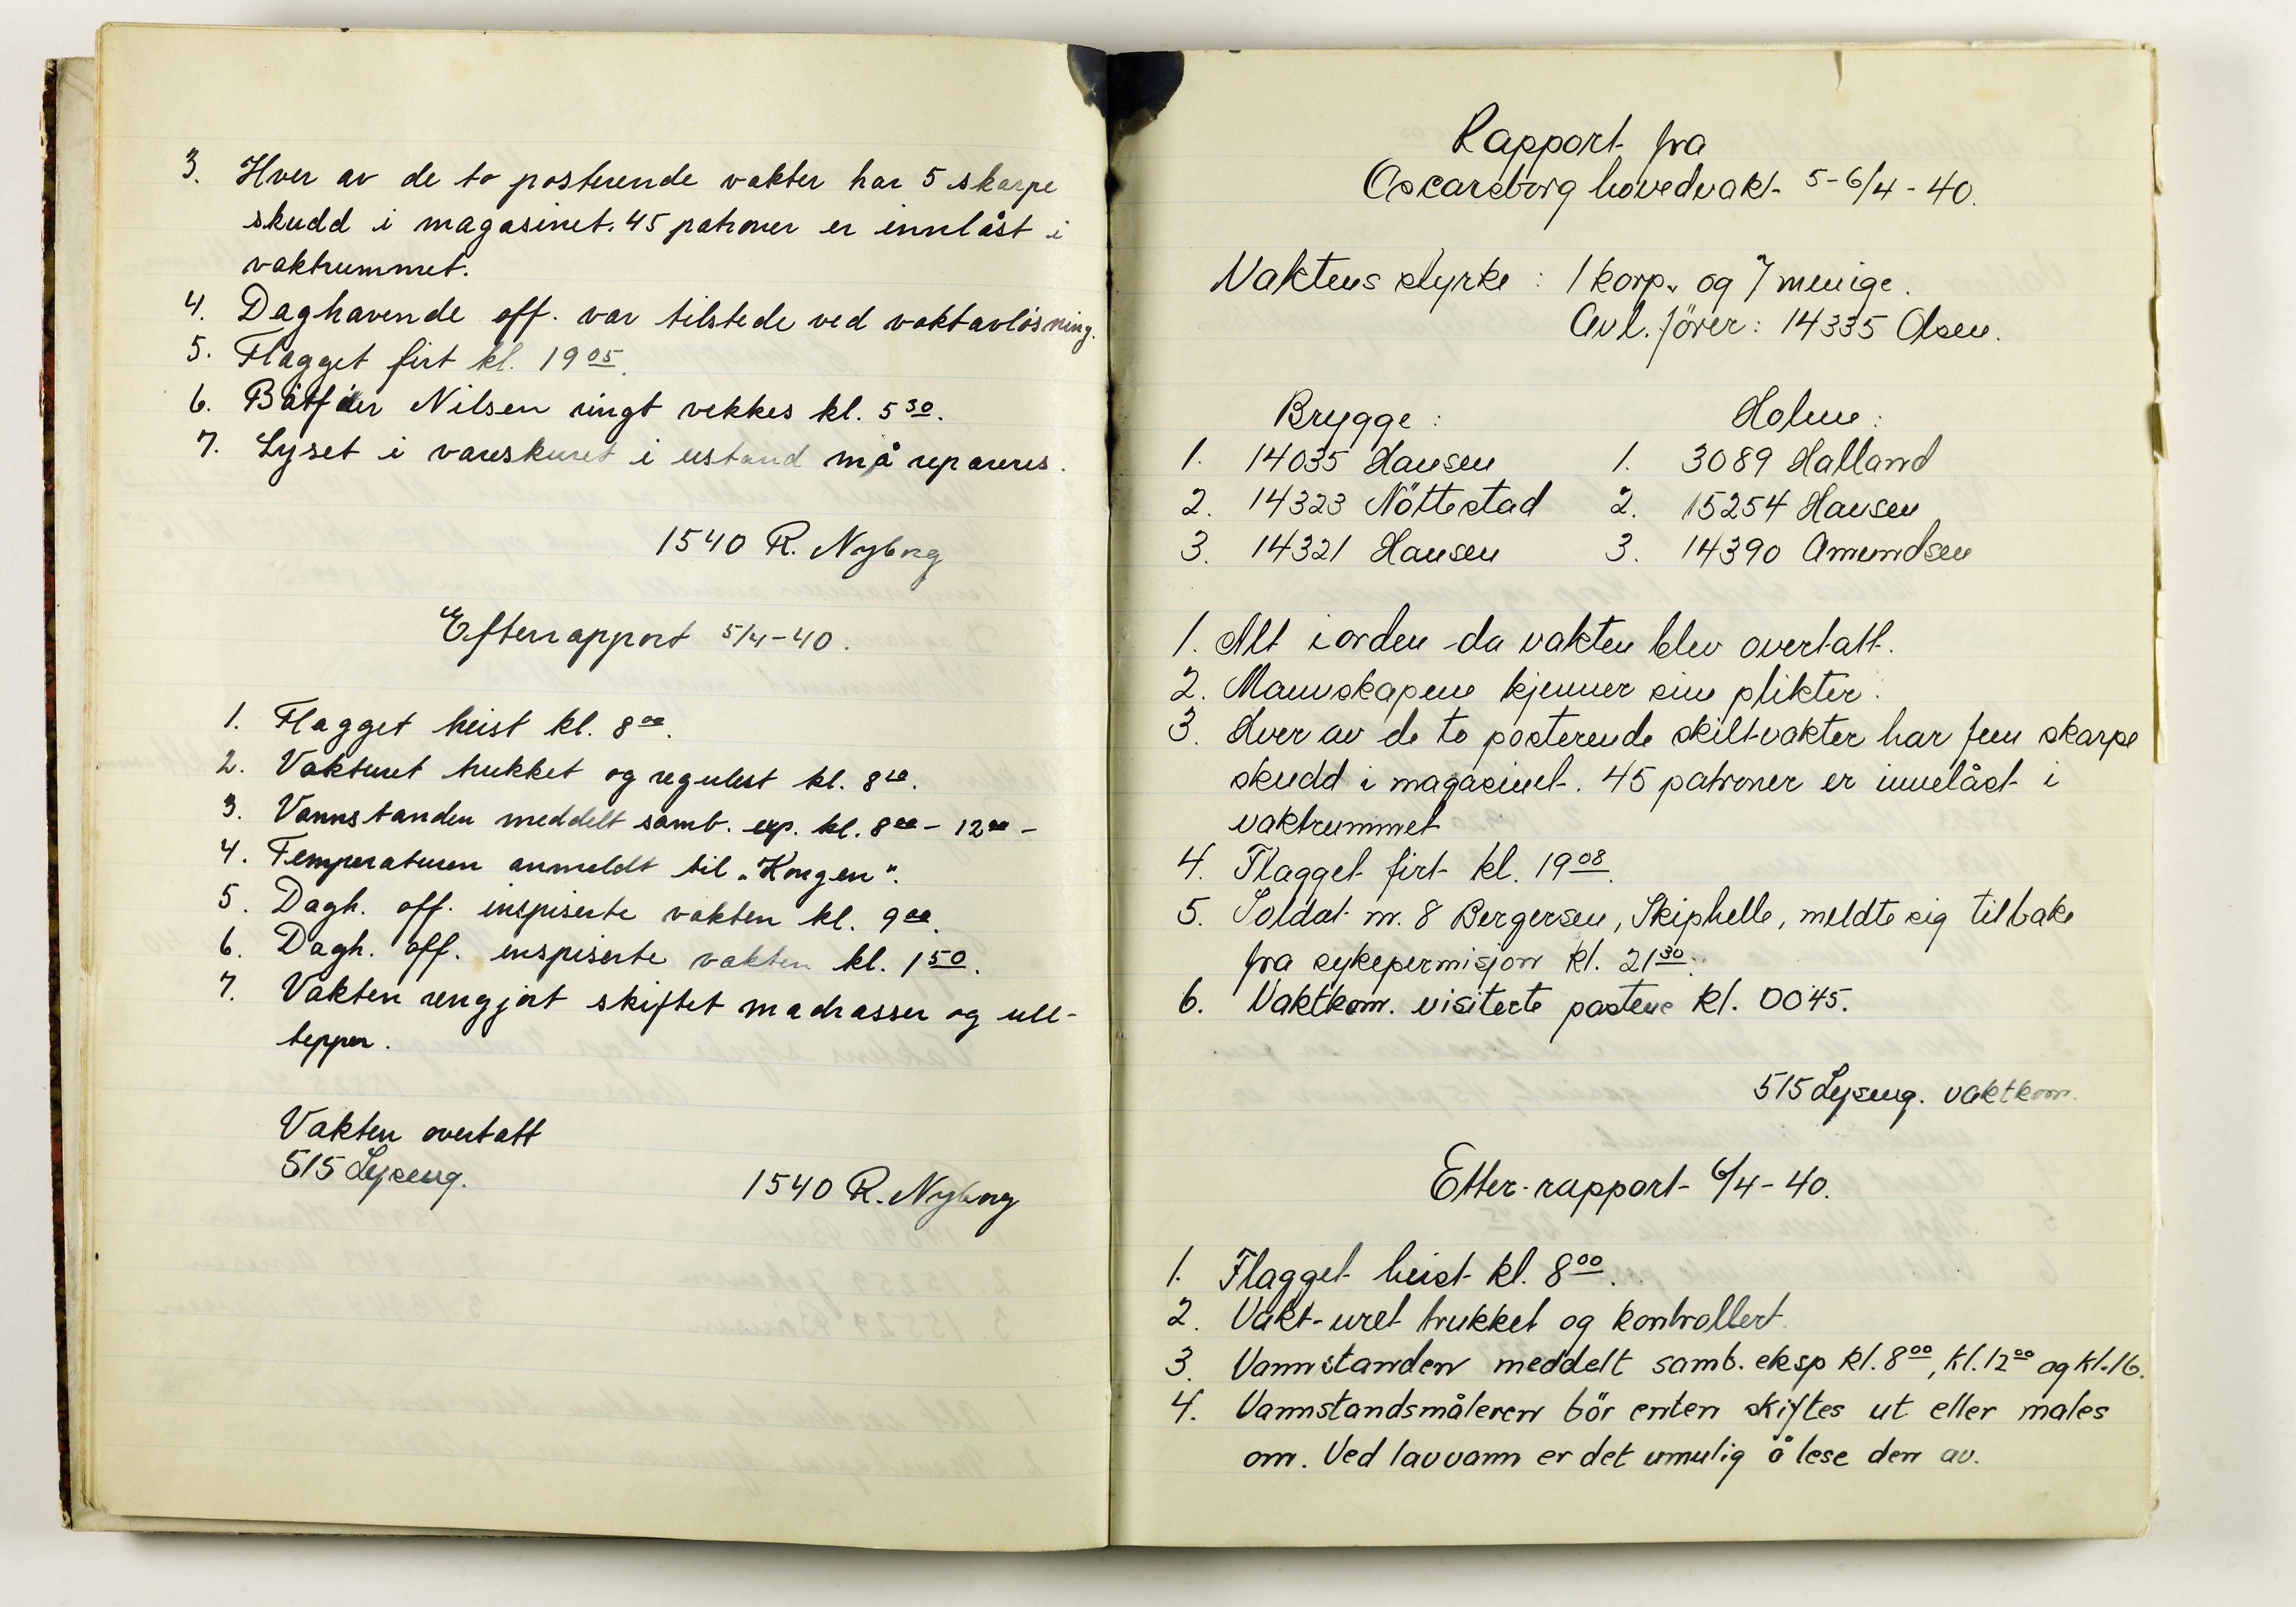 3. Hver av de to posterende vakter har 5 skarpe
skudd i magasinet. 45 patroner er innlåst i
vaktrummet.
4. Daghavende off. var tilstede ved vaktavlösning.
5. Flagget firt kl. 19 05.
6. Nilsen ringt vekkes kl. 5 30.
7. Lyset i vareskuret i ustand må repareres.
1540 R. Nyborg
Efterrapport 5/4-40.
1. Flagget heist kl. 8 00.
2. Vakturet trukket og regulert kl. 8
3. Vannstanden meddelt samb. exp. kl. 8 00 - 12 00 -
4. Temperaturen anmeldt til "Kongen".
5. Dagh. off. inspiserte vakten kl. 9 00.
6. Dagh. off. inspiserte vakten kl. 1 50.
7. Vakten rengjort skiftet madrasser og ull-
tepper.
Vakten overtatt
515 Lyseng.
1540 R. Nyborg
Rapport fra
Oscarsborg hovedvakt 5-6/4-40.
Vaktens styrke : 1 korp. og 7 menige.
Avl. förer : 14335 Olsen.
Brygge : Holme :
1. 14035 Hansen 1. 3089 Halland
2. 14323 Nöttestad 2. 15254 Hansen
3. 14321 Hansen 3. 14390 Amundsen
1. Alt iorden da vakten blev overtatt.
2. Mannskapene kjenner sine plikter.
3. Hver av de to posterende skiltvakter har fem skarpe
skudd i magasinet. 45 patroner er innelåst i
vaktrummet
4. Flagget firt kl. 19 08.
5. Soldat nr. 8 Bergersen, Skiphelle, meldte sig tilbake
fra sykepermisjon kl. 21 30.
6. Vaktkom. visiterte postene kl. 0045.
515 Lyseng. vaktkom.
Etter-rapport 6/4-40.
1. Flagget heist kl. 8 00.
2. Vakt-uret trukket og kontrollert.
3. Vannstanden meddelt samb. eksp kl. 8 00, kl. 12 00 og kl. 16.
4. Vannstandsmåleren bör enten skiftes ut eller males
om. Ved lavvann er det umulig å lese den av.